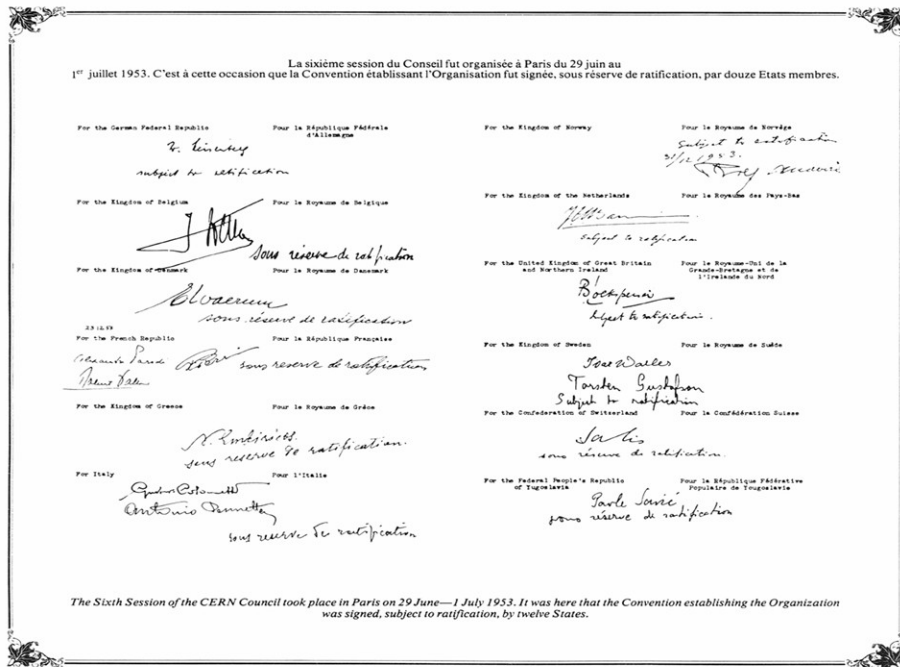 La sixième session du Conseil fut organisée à Paris du 29 juin au
1er juillet 1953. C'est à cette occasion que la Convention établissant l'Organisation fut signée, sous réserve de ratification, par douze Etats membres.
For the German Federal Republic Pour la République Fédérale
d'Allemagne
subject to ratification
For the Kingdom of Belgium Pour le Royaume de Belgique
sous réserve de ratification
For the Kingdom of Denmark Pour le Royaume de Danemark
sous réserve de ratification
23.12.53
For the French Republic Pour la République Française
Alexandre Parodi
sous reserve de ratification
For the Kingdom of Greece Pour le Royaume de Grèce
sous reserve de ratification.
For Italy Pour l'Italie
Gustavo Colonnetti
Antonio Pennetta
sous reserve de ratification
For the Kingdom of Norway Pour le Royaume de Norvège
Subject to ratification
31/12 1953.
For the Kingdom of the Netherlands Pour le Royaume des Pays-Bas
subject to ratification
For the United Kingdom of Great Britain Pour le Royaume-Uni de la
and Northern Ireland Grande-Bretagne et de
l'Irelande du Nord
Subject to ratification.
For the Kingdom of Sweden Pour le Royaume de Suède
Torsten Gustafson
Subject to ratification
For the Confederation of Switzerland Pour la Confédération Suisse
Salis
sous réserve de ratification.
For the Federal People's Republic Pour la République Fédérative
of Yugoslavia Populaire de Yougoslavie
Pavle Savić
sous réserve de ratification
The Sixth Session of the CERN Council took place in Paris on 29 June—1 July 1953. It was here that the Convention establishing the Organization
was signed, subject to ratification, by twelve States.